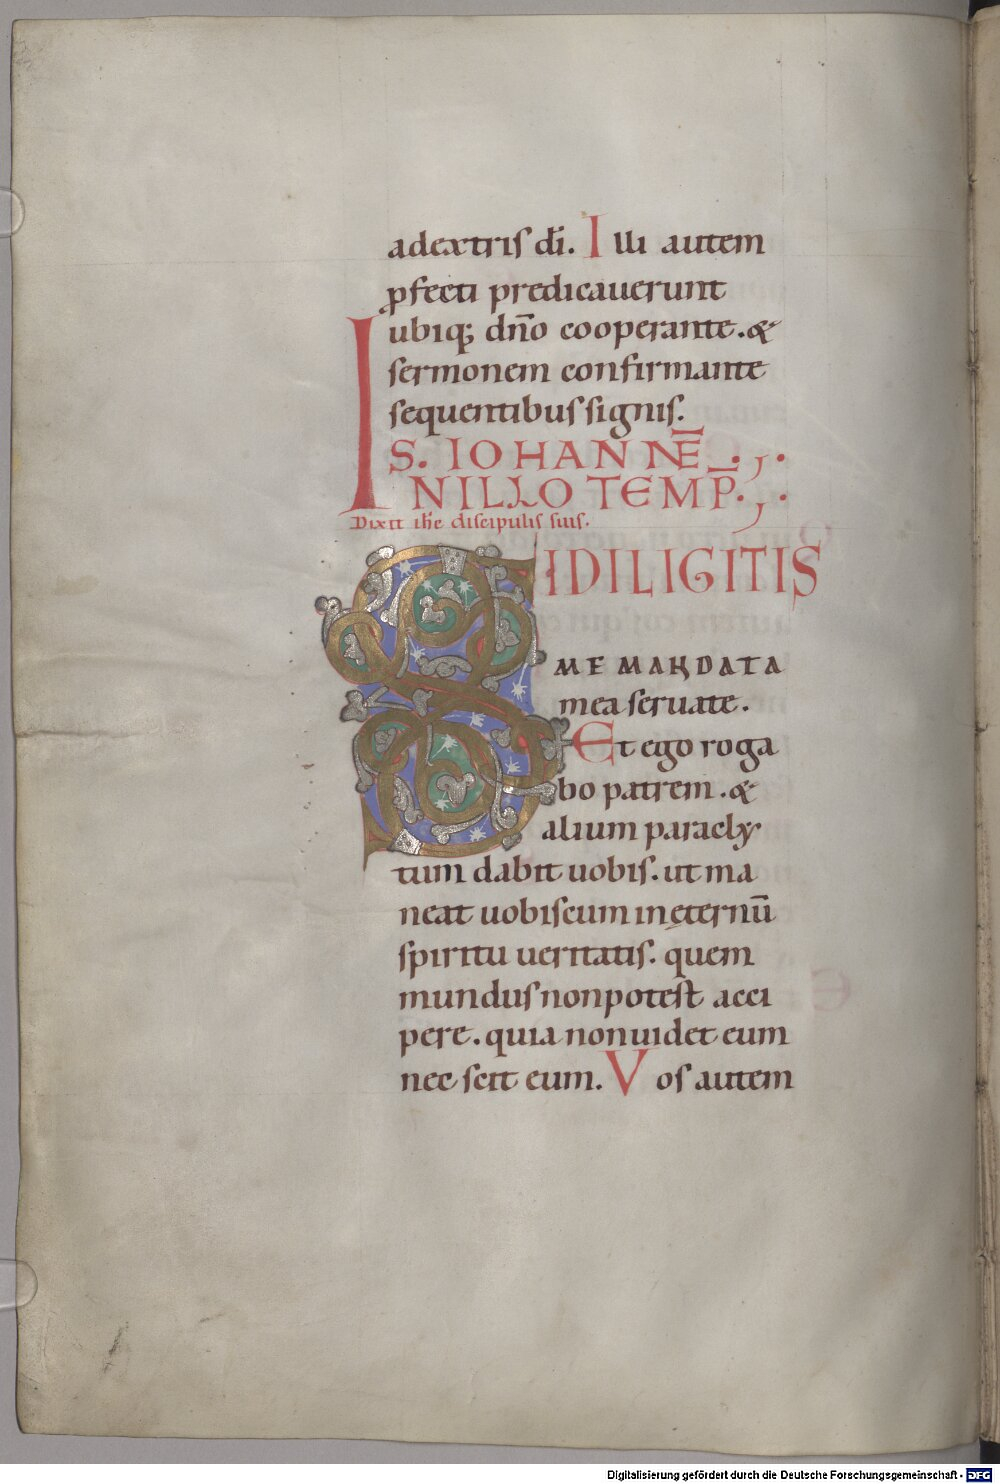 adextris dī. Illi autem
ꝓfecti predicauerunt
ubiq; dn̄o cooperante. &
sermonem confirmante
sequentibus signis.
S. IOHANNĒ
INILLO TEMP̄.
Dixit ih̄e discipulis suis.
SIDILIGITIS
ME MANDATA
mea seruate.
Et ego roga
bo patrem. &
alium paracly
tum dabit uobis. ut ma
neat uobiscum in ęternū
spiritu ueritatis. quem
mundus non potest acci
pere. quia non uidet eum
nec scit eum. Vos autem
Digitalisierung gefördert durch die Deutsche Forschungsgemeinschaft - DFG